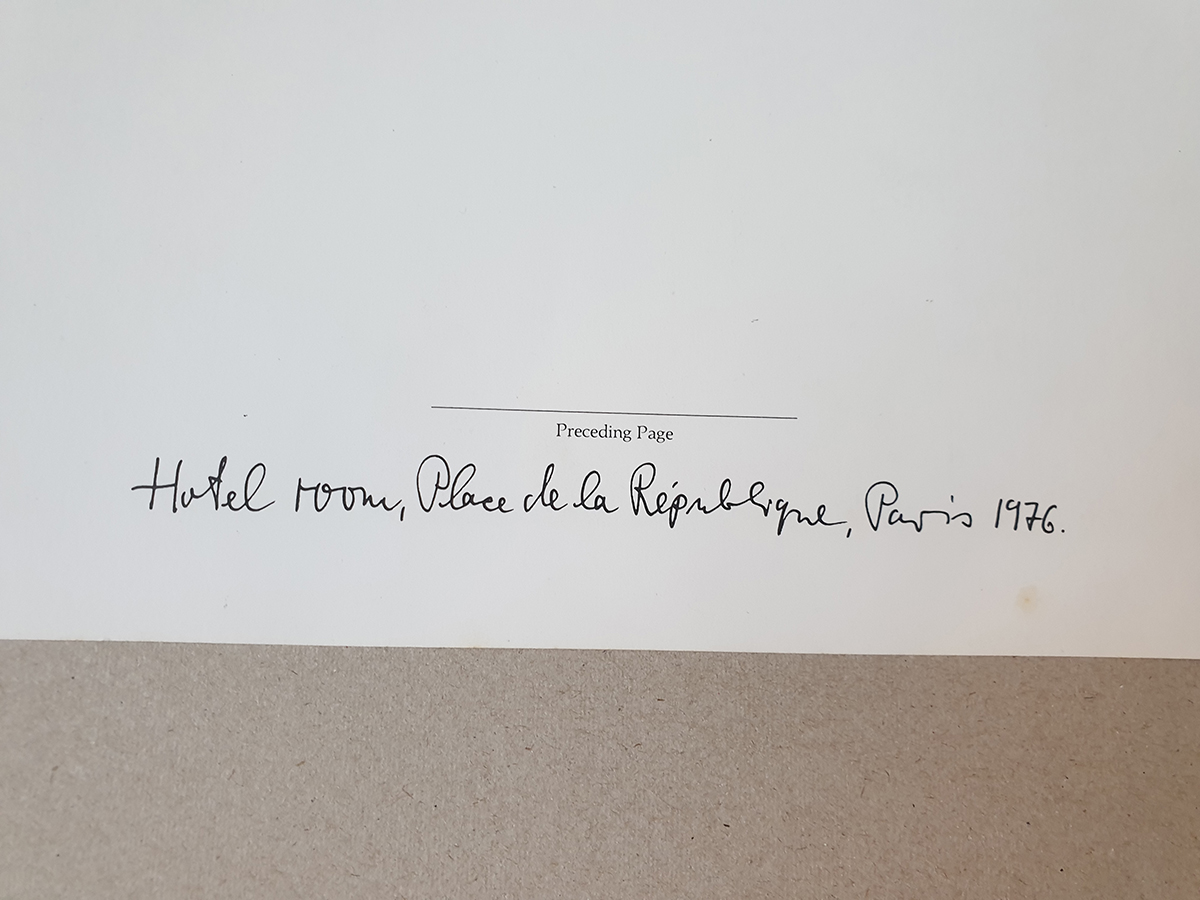 Preceding Page
Hotel room, Place de la République, Paris 1976.